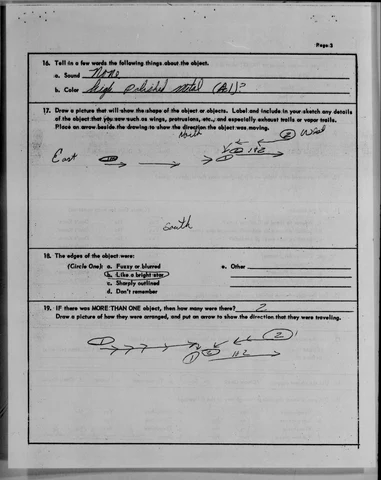 Page 3
16. Tell in a few words the following things about the object.
a. Sound None
b. Color high polished metal (Al)?
17. Draw a picture that will show the shape of the object or objects. Label and include in your sketch any details
of the object that you saw such as wings, protrusions, etc., and especially exhaust trails or vapor trails.
Place an arrow beside the drawing to show the direction the object was moving.
North
2
East
1
1
2
1&2
South
18. The edges of the object were:
(Circle One): a. Fuzzy or blurred
e. Other
b. Like a bright star
c. Sharply outlined
d. Don't remember
19. IF there was MORE THAN ONE object, then how many were there? 2
Draw a picture of how they were arranged, and put an arrow to show the direction that they were traveling.
1
2
1
2
1&2